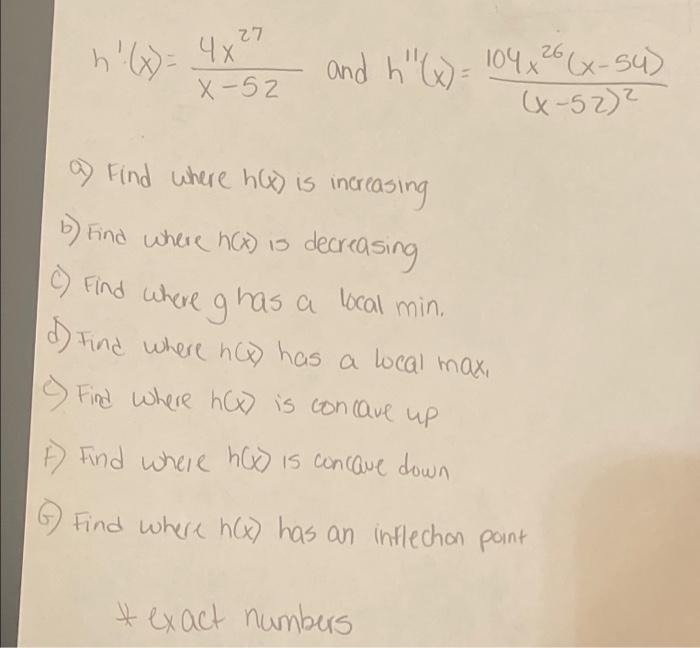 h'(x) = 4x^27 / (x-52) and h''(x) = 104x^26(x-54) / (x-52)^2
a) Find where h(x) is increasing
b) Find where h(x) is decreasing
c) Find where g has a local min.
d) Find where h(x) has a local max.
e) Find where h(x) is concave up
F) Find where h(x) is concave down
G) Find where h(x) has an inflechon point
* exact numbers